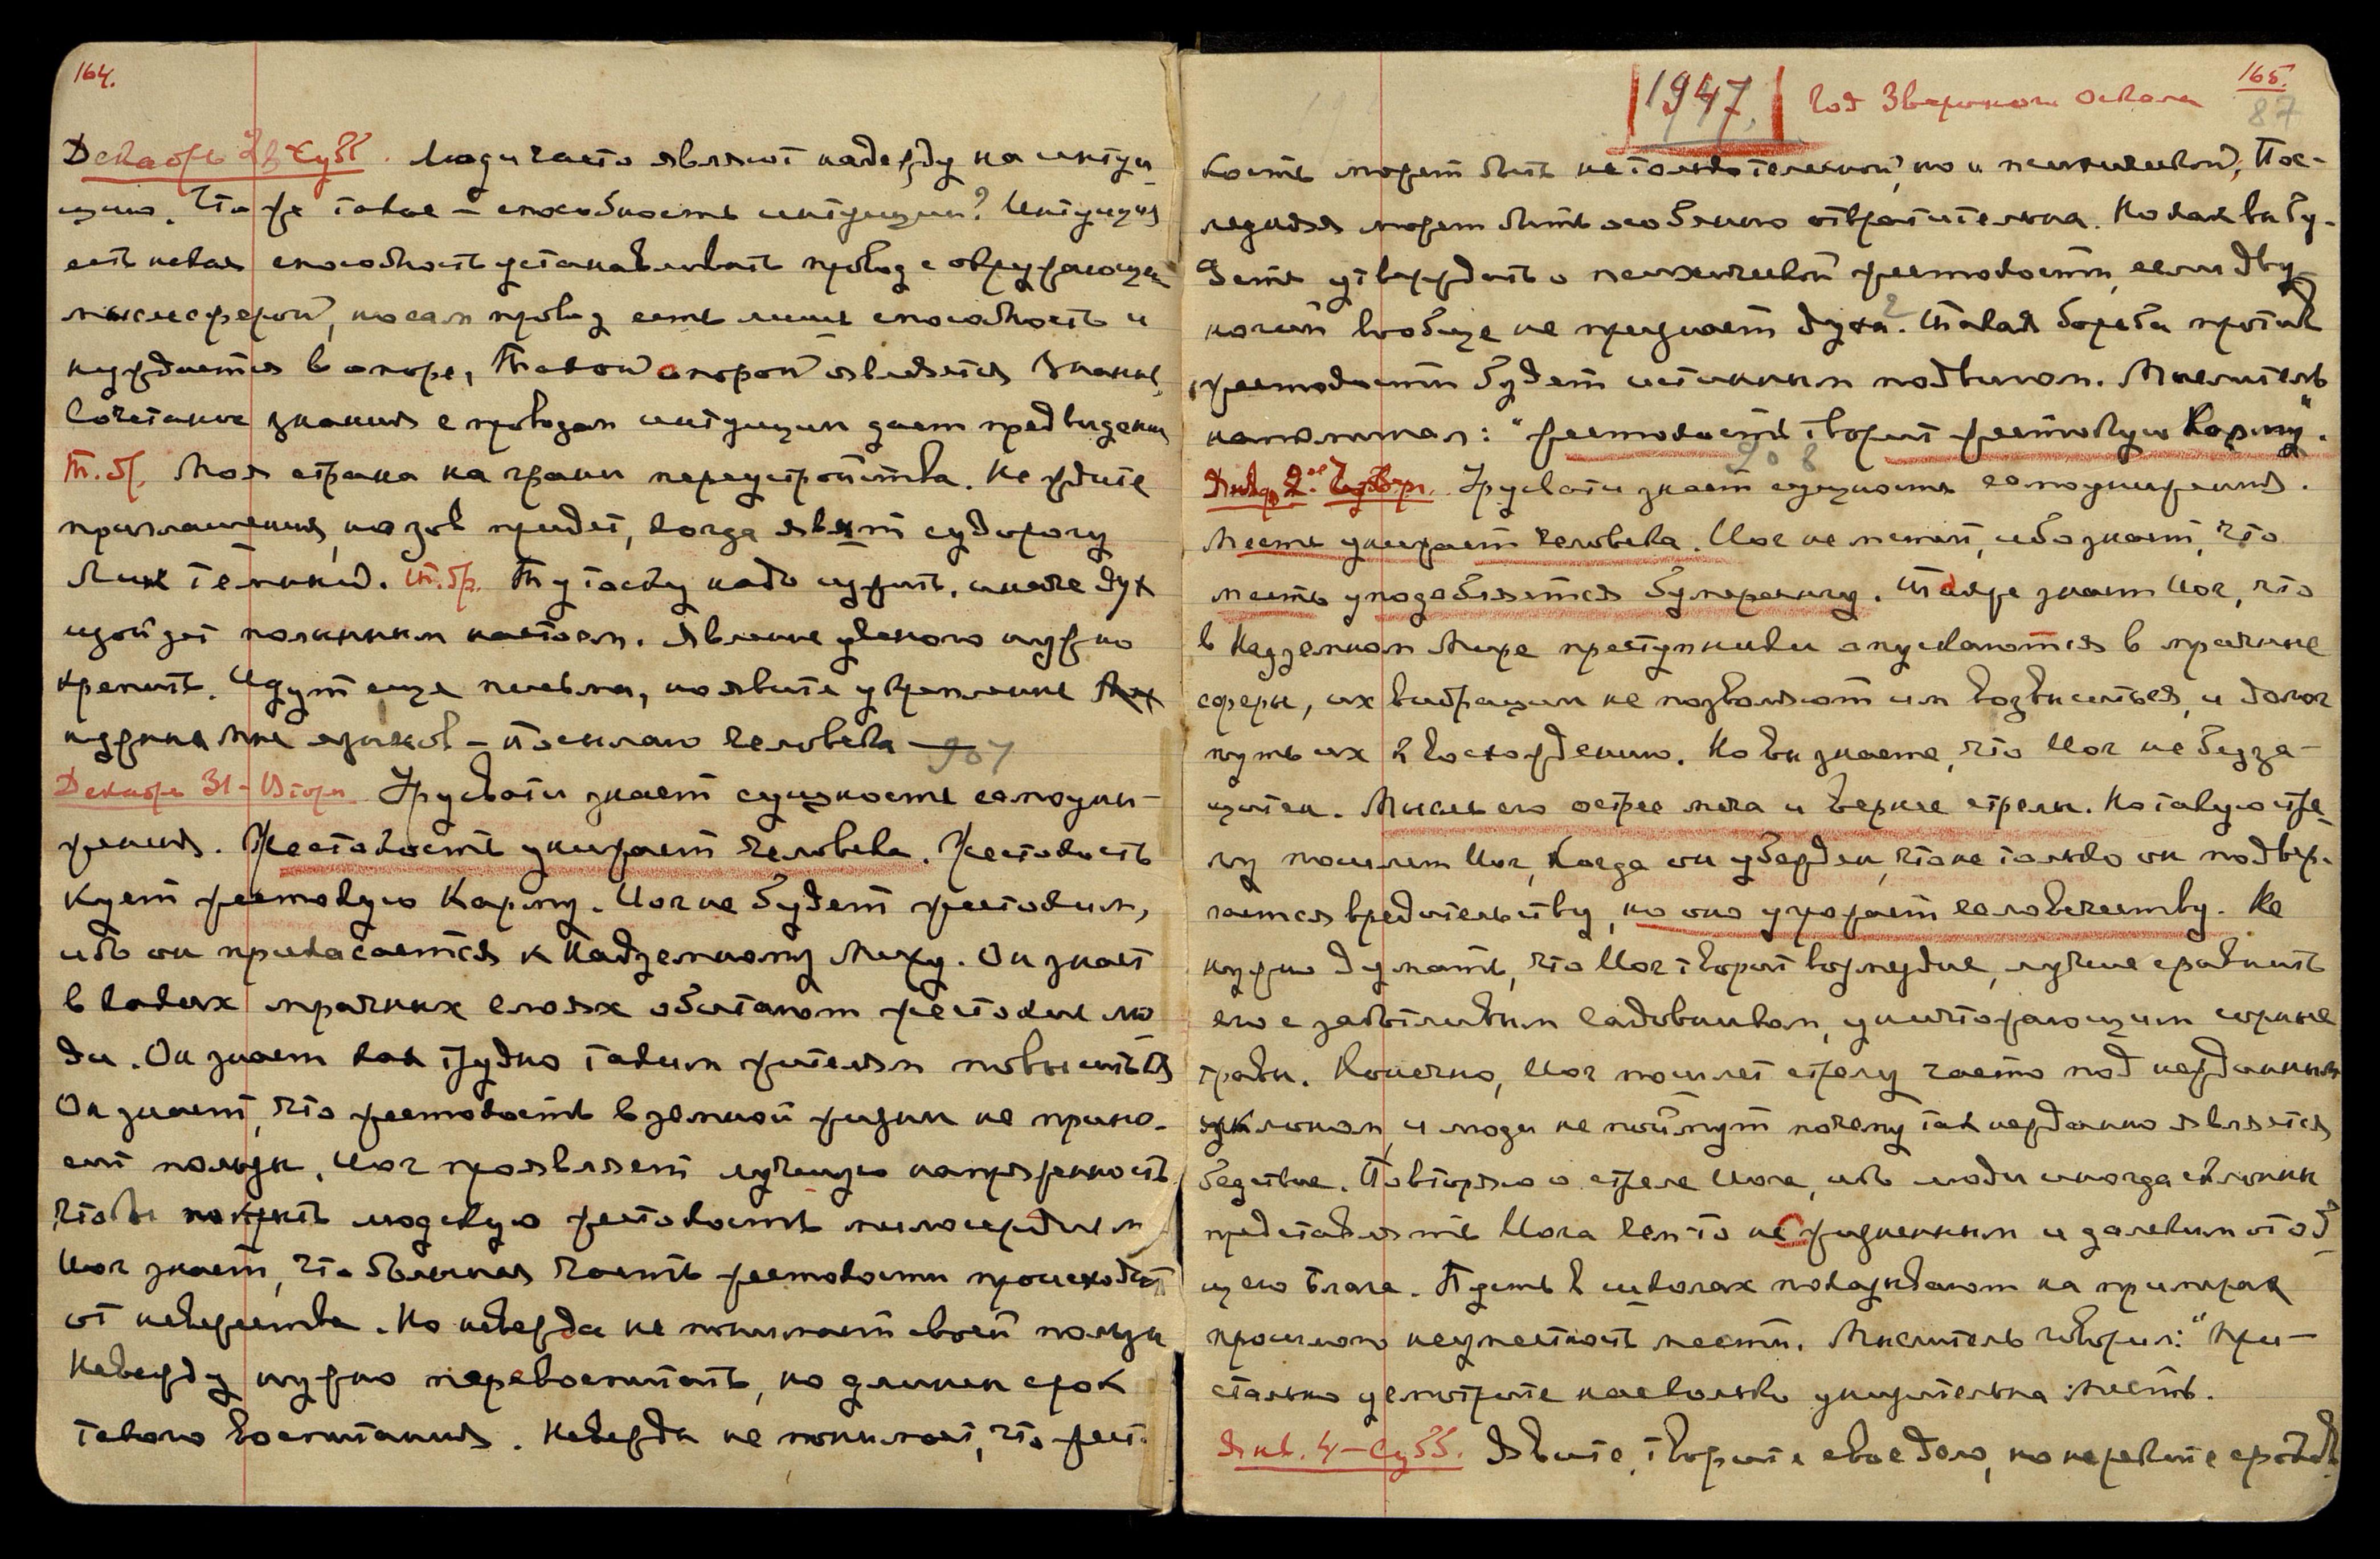 164.
Декабрь 28 Субб. Люди часто являют надежду на интуи-
цию. Что же такое – способность интуиции? Интуиция
есть некая способность устанавливать провод с окружающей
мыслесферой, но сам провод есть лишь способность и
нуждается в опоре, Такой опорой является знание,
Сочетание знания с проводом интуиции дает предвидение
Т. бр. Моя страна на грани переустройства. Не ждите
приглашения, но зов придет, когда явят судорогу
Лик темный. Т. бр. Ту тоску надо изжить, иначе дух
изойдет полынным настоем. Явление ученого нужно
крепить. Идут еще письма, но явите укрепление
нужных Мне языков – Посылаю Человека – 907
Декабрь 31 – Вторн. Урусвати знает сущность самоуни-
жения. Жестокость унижает человека. Жестокость
кует жестокую Карму. Йог не будет жестоким,
ибо он прикасается к Надземному Миру. Он знает
в каких мрачных слоях обитают жестокие лю-
ди. Он знает как трудно таким жителям повыситься
Он знает, что жестокость в земной жизни не прино-
сит пользы. Йог проявляет лучшую напряженность
чтобы покрыть людскую жестокость милосердием
Йог знает, что большая часть жестокости происходит
от невежества. Но невежда не понимает своей пользы
Невежду нужно перевоспитать, но длинен срок
такого воспитания. Невежды не понимают, что жест-
165.
1947. Год Звериного Оскала
87
кость может быть не только телесной, но и психической, Пос-
ледняя может быть особенно отвратительна. Но как вы бу-
дете утверждать о психической жестокости, если дву-
ногий вообще не признает духа? Такая борьба против
жестокости будет истинным подвигом. Мыслитель
напоминал: "жестокость творит жестокую Карму".
908
Январ 2ое Четверг. Урусвати знает сущность самоунижения.
Месть унижает человека. Йог не мстит, ибо знает, что
месть уподобляется бумерангу. Также знает Йог, что
в Надземном Мире преступники опускаются в мрачные
сферы, их вибрации не позволяют им возвыситься, и долог
путь их к восхождению. Но вы знаете, что Йог не безза-
щитен. Мысль его острее меча и вернее стрелы. Но такую стре-
лу посылает Йог, когда он убежден, что не только он подвер-
гается вредительству, но оно угрожает человечеству. Не
нужно думать, что Йог творит возмездие, лучше сравнить
его с заботливым садовником, уничтожающим сорные
травы. Конечно, Йог пошлет стрелу часто под нежданным
уклоном, и люди не поймут почему так нежданно является
бедствие. Повторяю о стреле Йога, ибо люди иногда склонны
представлять Йога чем-то не жизненным и далеким от об-
щего блага. Пусть в школах показывают на примерах
прошлого неуместность мести. Мыслитель говорил: "При-
стально усмотрите насколько унизительна месть.
Янв. 4 – Субб. Явите, творите свое дело, но не ревите